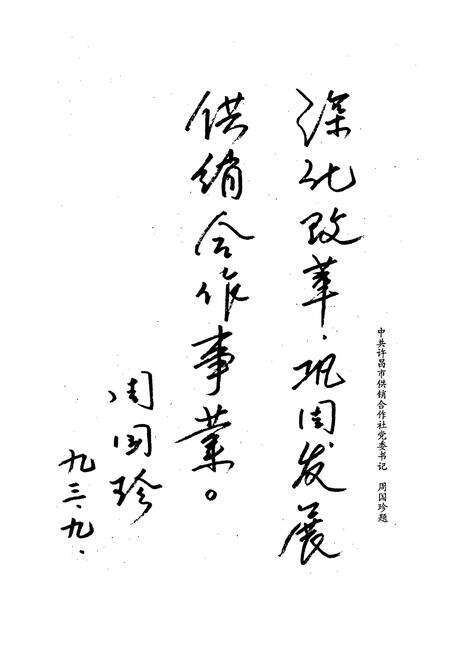 中共许昌市供销合作社党委书记 周国珍题
深化改革，巩固发展
供销合作事业。
周国珍
九三.九.